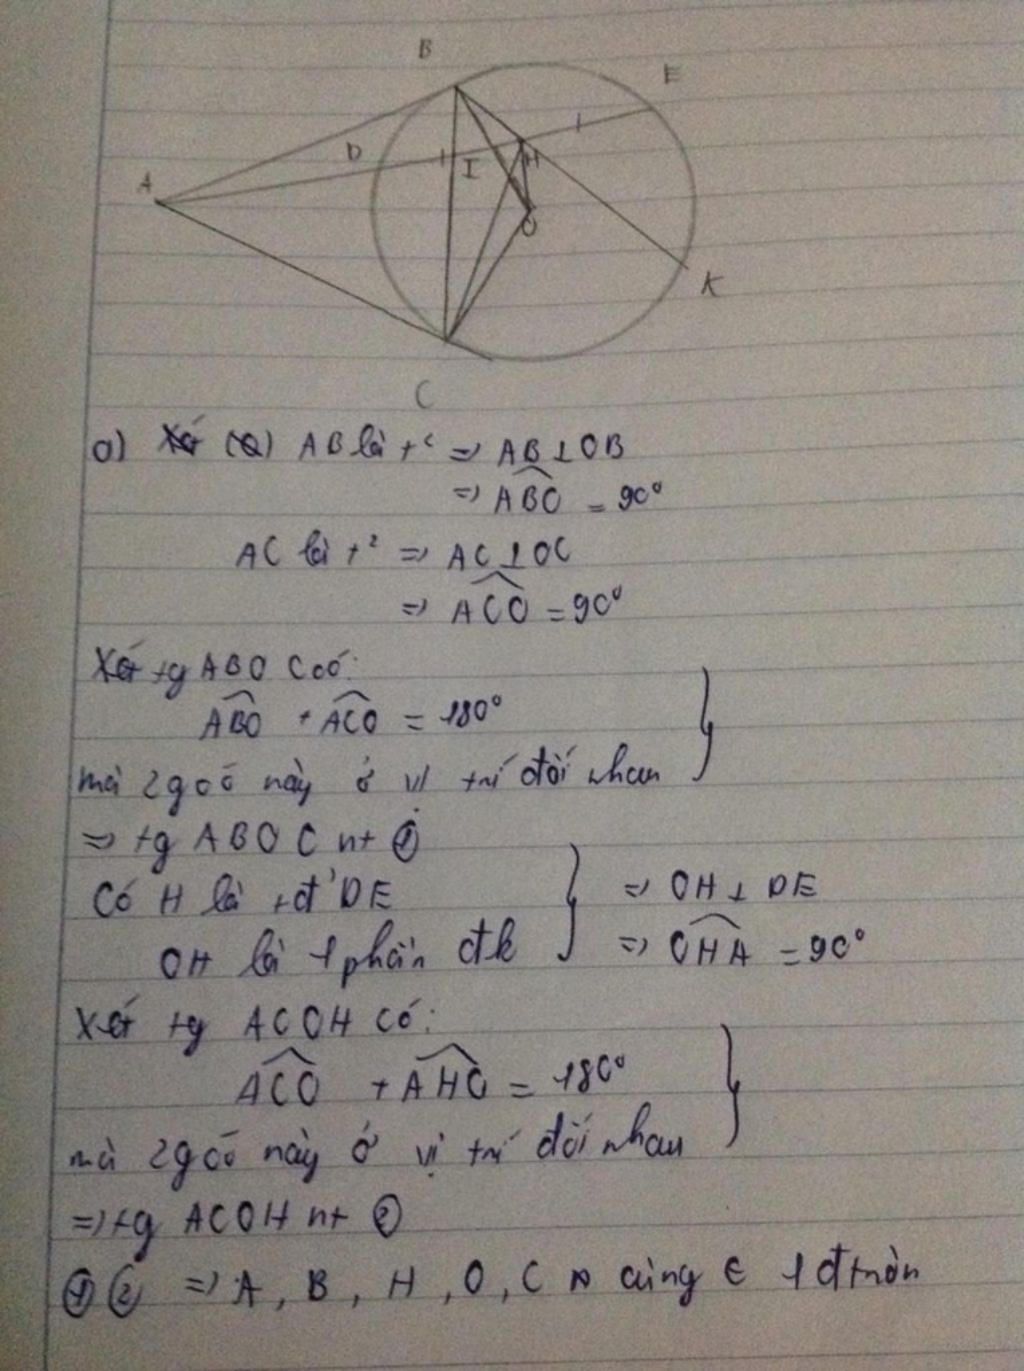 B
E
D
I
H
A
O
K
C
a) Xét (O) AB là t² => AB ⊥ OB
=> ABO = 90°
AC là t² => AC ⊥ OC
=> ACO = 90°
Xét tg ABOC có:
ABO + ACO = 180°
mà 2 góc này ở vị trí đối nhau
=> tg ABOC nt ①
Có H là tđ' DE
=> OH ⊥ DE
OH là 1 phần đk
=> OHA = 90°
Xét tg ACOH có:
ACO + AHO = 180°
mà 2 góc này ở vị trí đối nhau
=> tg ACOH nt ②
① ② => A, B, H, O, C cùng ∈ 1 đtròn